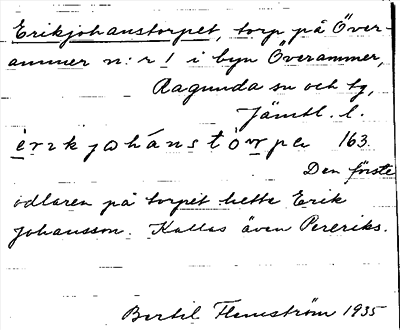 Erikjohanstorpet, torp på Över-
ammer n:r 1 i byn Överammer,
Ragunda sn och tg,
Jämtl. l.
èrikjohánstòrpe 163.
Den förste
odlaren på torpet hette Erik
Johansson. Kallas även Pereriks.
Bertil Flemström 1935